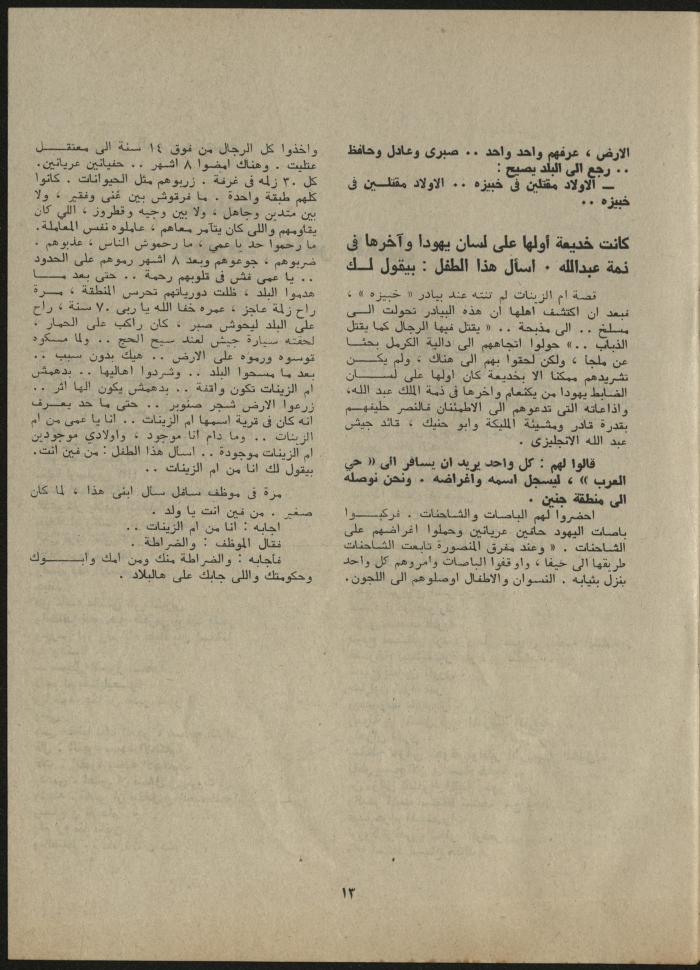 الارض ، عرفهم واحد واحد .. صبرى وعادل وحافظ
.. رجع الى البلد يصيح :
ــ الاولاد مقتلين فى خبيزه .. الاولاد مقتلــين فى
خبيزه ..
كانت خديعة أولها على لسان يهودا وآخرها فى
ذمة عبدالله ٠ اسأل هذا الطفل : بيقول لــك
قصة ام الزينات لم تنته عند بيادر « خبيزه » ،
فبعد ان اكتشف اهلها ان هذه البيادر تحولت الــى
مسلخ .. الى مذبحة .. « يقتل فيها الرجال كما يقتل
الذباب ..» حولوا اتجاههم الى دالية الكرمل بحثــا
عن ملجا ، ولكن لحقوا بهم الى هناك ، ولم يكــــن
تشريدهم ممكنا الا بخديعة كان اولها على لســــان
الضابط يهودا من يكنعام وآخرها فى ذمة الملك عبد الله،
واذاعاته التى تدعوهم الى الاطمئنان فالنصر حليفهــم
بقدرة قادر ومشيئة المليكة وابو حنيك ، قائد جيش
عبد الله الانجليزى .
قالوا لهم : كل واحد يريد ان يسافر الى « حي
العرب » ، ليسجل اسمه وأغراضه ٠ ونحن نوصله
الى منطقة جنين ٠
احضروا لهم الباصات والشاحنات . فركبــــوا
باصات اليهود حافين عريانين وحملوا اغراضهم على
الشاحنات . « وعند مفرق المنصورة تابعت الشاحنات
طريقها الى حيفا ، واوقفوا الباصات وامروهم كل واحد
بنزل بثيابه . النسوان والاطفال اوصلوهم الى اللجون.
واخذوا كل الرجال من فوق ١٤ سنة الى معتقــــل
عتليت . وهناك امضوا ٨ اشهر .. حفيانين عريانين.
كل ٣٠ زلمه فى غرفة . زربوهم مثل الحيوانات . كانوا
كلهم طبقة واحدة . ما فرقوش بين غنى وفقير ، ولا
بين متدين وجاهل ، ولا بين وجيه وقطروز ، اللى كان
يقاومهم واللى كان يتآمر معاهم ، عاملوه نفس المعاملة.
ما رحموا حد يا عمي ، ما رحموش الناس ، عذبوهم .
ضربوهم ، جوعوهم وبعد ٨ اشهر رموهم على الحدود
.. يا عمى فش فى قلوبهم رحمة .. حتى بعد مـــا
هدموا البلد ، ظلت دورياتهم تحرس المنطقة ، مــرة
راح زلمة عاجز ، عمره خفا الله يا ربى ٧٠ سنة ، راح
على البلد ليحوش صبر ، كان راكب على الحمار ،
لحقته سيارة جيش لعند سيح الحج .. ولما مسكوه
توسوه ورموه على الارض .. هيك بدون سبب ..
بعد ما مسحوا البلد .. وشردوا اهاليها .. بدهمش
ام الزينات تكون واقفة .. بدهمش يكون الها اثر ..
زرعوا الارض شجر صنوبر .. حتى ما حد يعــرف
انه كان فى قرية اسمها ام الزينات .. انا يا عمى من ام
الزينات .. وما دام انا موجود ، واولادي موجودين
ام الزينات موجودة .. اسال هذا الطفل : من فين انت.
بيقول لك انا من ام الزينات ..
مرة فى موظف سافل سال ابنى هذا ، لما كان
صغير . من فين انت يا ولد .
اجابه : انا من ام الزينات ..
فقال الموظف : والضراطة .
فأجابه : والضراطة منك ومن امك وابــــــوك
وحكومتك واللى جابك على هالبلاد .
١٣